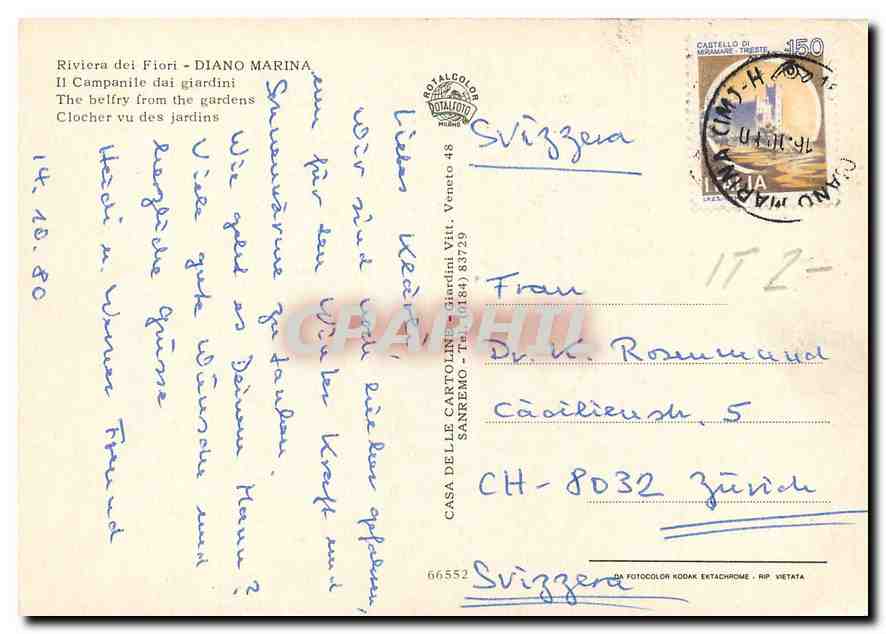 Riviera dei Fiori - DIANO MARINA
Il Campanile dai giardini
The belfry from the gardens
Clocher vu des jardins
14. 10. 80
Liebes Kläri,
Wir sind noch hierher gefahren,
um für den Winter Kraft und
Sonnenwärme zu tanken.
Wie geht es Deinem Mann?
Viele gute Wünsche und
herzliche Grüsse
Heidi u. Werner Freund
ROTALCOLOR
ROTALFOTO
MILANO
CASA DELLE CARTOLINE - Giardini Vitt. Veneto 48
SANREMO - Tel. (0184) 83729
66552
CASTELLO DI
MIRAMARE - TRIESTE
150
ITALIA
DIANO MARINA (IM)
Svizzera
IT 2-
Frau
Dr. K. Rosenmund
Cäcilienstr. 5
CH - 8032 Zürich
Svizzera
DA FOTOCOLOR KODAK EKTACHROME - RIP. VIETATA
CPAPHIL